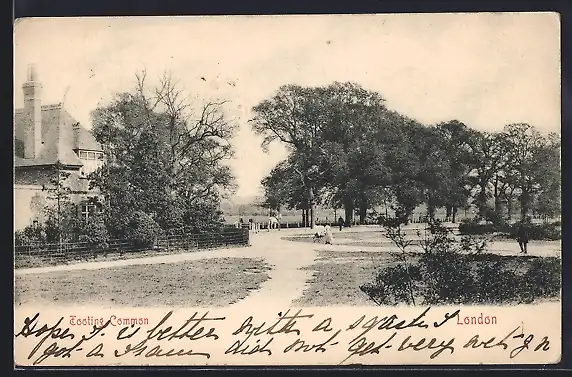 Tooting Common
London
Hope is better with a I
got a tram did not get very wet-